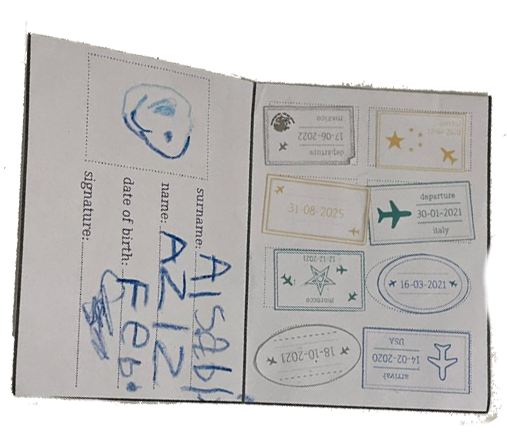 surname:
name: AZIZ
date of birth: Feb.
signature:
departure
17-06-2022
mexico
31-08-2025
departure
30-01-2021
italy
morocco
12-12-2021
16-03-2021
18-10-2021
arrival
14-02-2020
USA